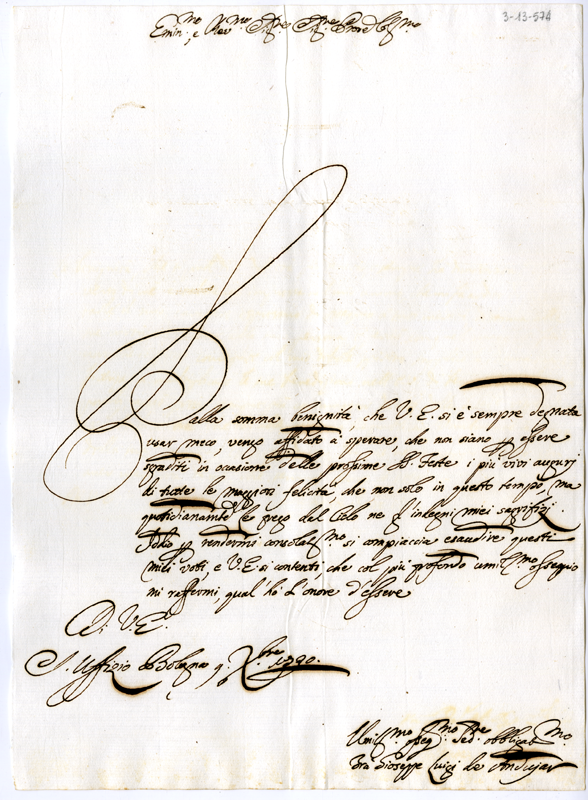 3-13-574
Emin.mo e Rev.mo Sig.re Sig.re Prone Col.mo
Dalla somma benignità, che V. E. si è sempre degnata
usar meco, vengo affidato à sperare, che non siano p essere
sgraditi in occasione delle prossime S. Feste i più vivi auguri
di tutte le maggiori felicità che non solo in questo tempo, ma
quotidianamte le prego dal Cielo ne gl'indegni miei sagrifizi.
Iddio p rendermi consolatmo si compiaccia esaudire questi
miei voti, e V. E. si contenti, che col più profondo umil.mo ossequio
mi raffermi, qual' hò l'onore d'essere
Di V. E.
S. Uffizio di Bologna 9. X.bre 1790.
Umil.mo osseq.mo Sed.re obbligat.mo
Fra Giuseppe Luigi de Andujar